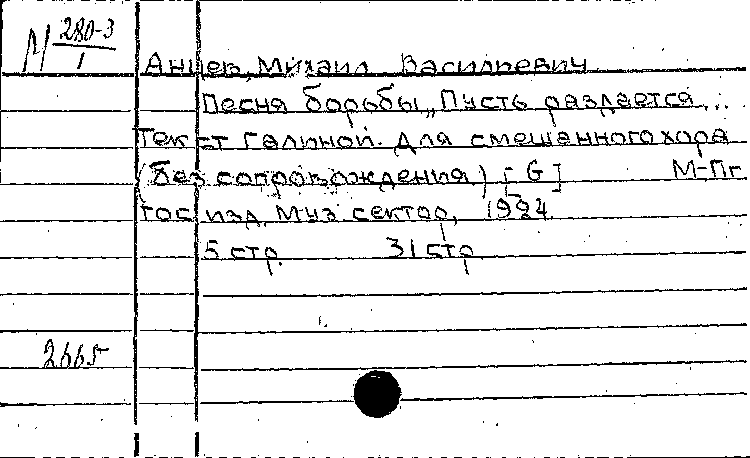 М 280-3
1
Анцев, Михаил Васильевич
Песня борьбы „Пусть раздается...
Текст Галиной. Для смешанного хора
(без сопровождения) [G] М-Пг
Гос изд. Муз сектор, 1924
5 стр. 31 стр
2665